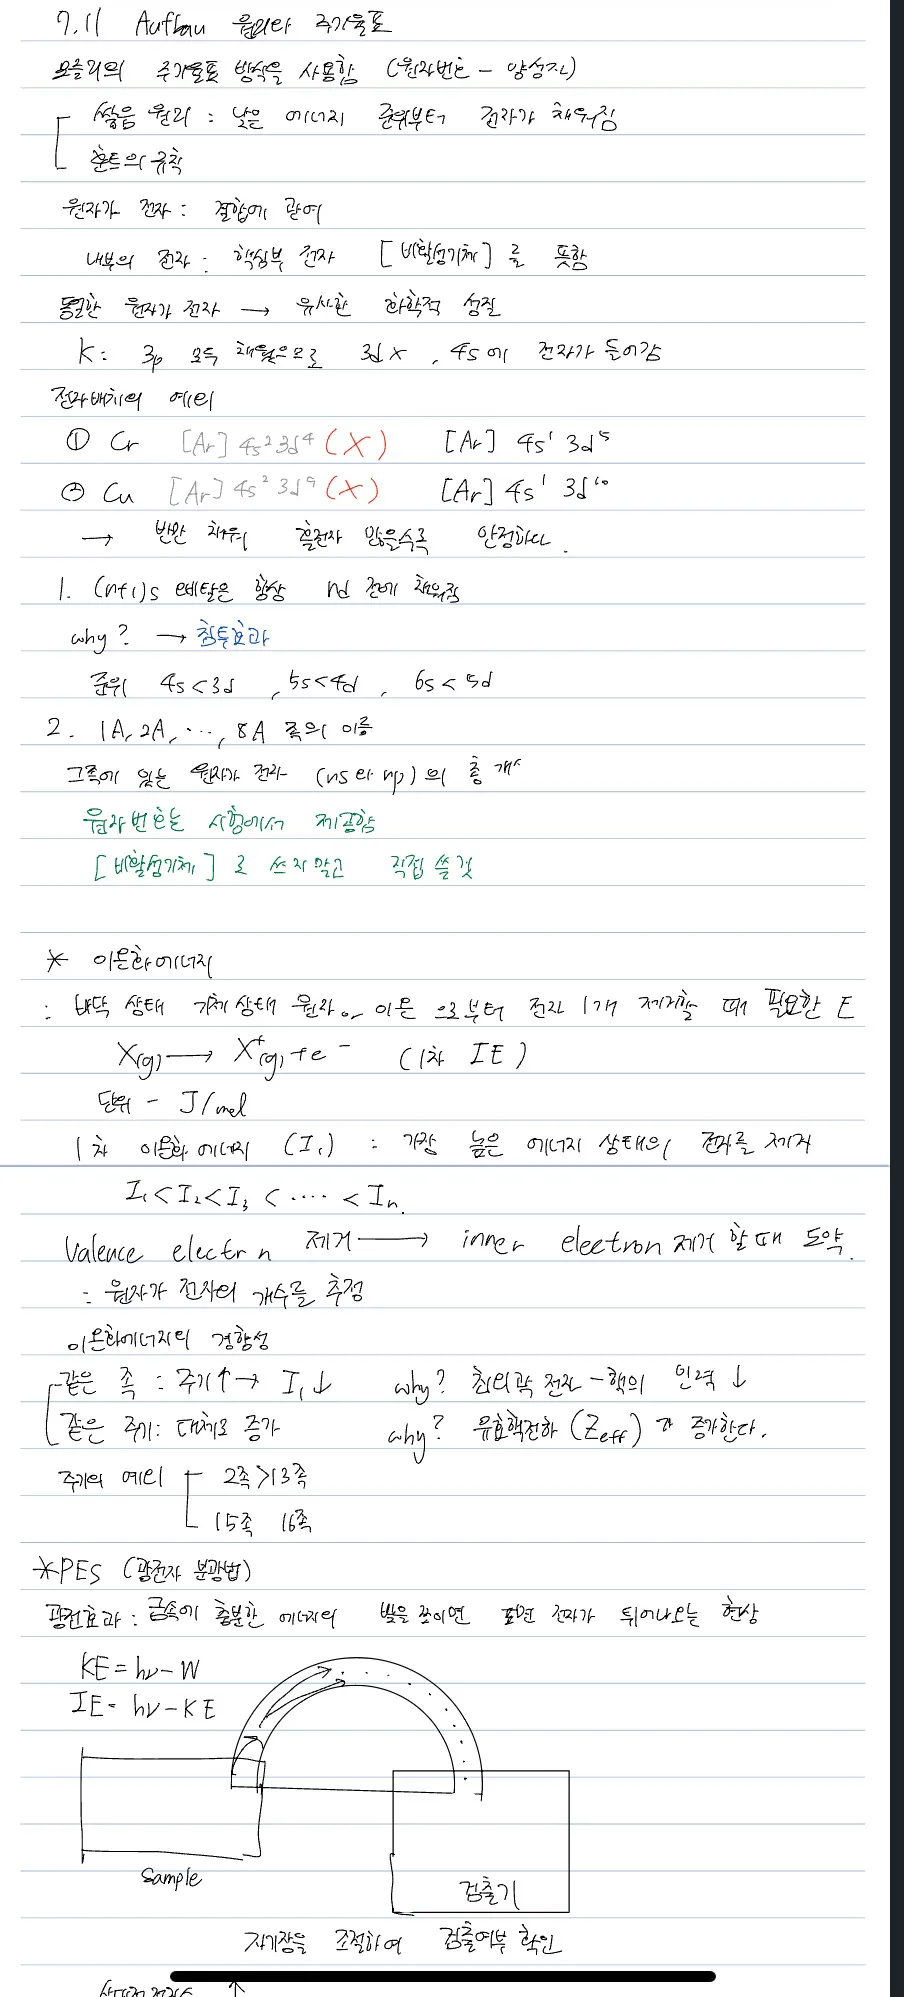 7.11 Aufbau 원리와 주기율표
모즐리의 주기율표 방식을 사용함 (원자번호 - 양성자)
쌓음 원리 : 낮은 에너지 준위부터 전자가 채워짐
훈트의 규칙
원자가 전자 : 결합에 관여
내부의 전자 : 핵심부 전자 [비활성기체]를 뜻함
동일한 원자가 전자 → 유사한 화학적 성질
K : 3p 모두 채웠으므로 3d X , 4s에 전자가 들어감
전자배치의 예외
① Cr [Ar] 4s² 3d⁴ (X) [Ar] 4s¹ 3d⁵
② Cu [Ar] 4s² 3d⁹ (X) [Ar] 4s¹ 3d¹⁰
→ 반만 채워 홀전자 많을수록 안정하다.
1. (n+1)s 오비탈은 항상 nd 전에 채워짐
why? → 침투효과
준위 4s<3d , 5s<4d , 6s<5d
2. 1A, 2A, ···, 8A 족의 이름
그족에 있는 원자가 전자 (ns와 np)의 총 개수
원자번호는 시험에서 제공함
[비활성기체]로 쓰지말고 직접 쓸것
* 이온화에너지
: 바닥 상태 기체상태 원자or 이온 으로부터 전자 1개 제거할 때 필요한 E
X(g) → X⁺(g) + e⁻ (1차 IE)
단위 - J/mol
1차 이온화에너지 (I₁) : 가장 높은 에너지 상태의 전자를 제거
I₁ < I₂ < I₃ < ···· < In.
Valence electr n 제거 → inner electron 제거 할 때 도약.
: 원자가 전자의 개수를 추정
이온화에너지의 경향성
같은 족 : 주기↑ → I₁↓ why? 최외곽 전자 - 핵의 인력 ↓
같은 주기: 대체로 증가 why? 유효핵전하 (Zeff)가 증가한다.
주기의 예외 2족>13족
15족 16족
*PES (광전자 분광법)
광전효과 : 금속에 충분한 에너지의 빛을 쪼이면 표면 전자가 튀어나오는 현상
KE = hν - W
IE = hν - KE
Sample
검출기
자기장을 조절하여 검출여부 확인